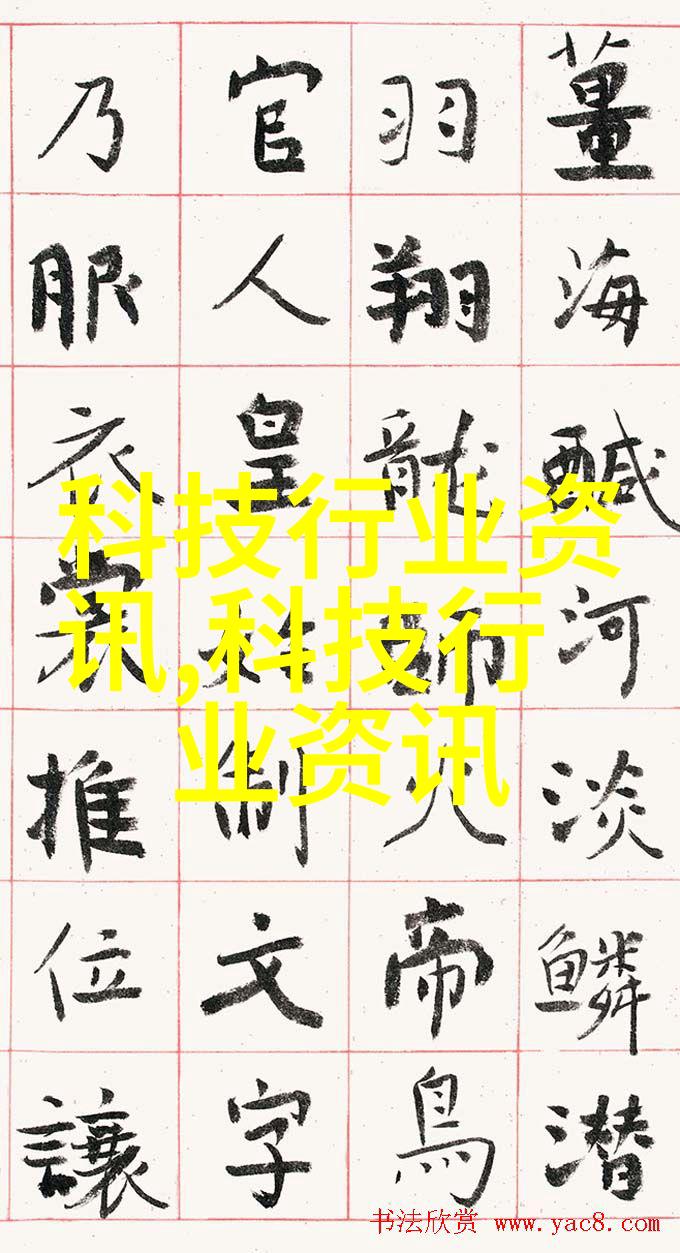 薑海醎河淡鱗潜
羽翔龍師火帝鳥
官人皇始制文字
乃服衣裳推位讓
科技行业资
讯,科技行
业资讯
书法欣赏 www.yac8.com